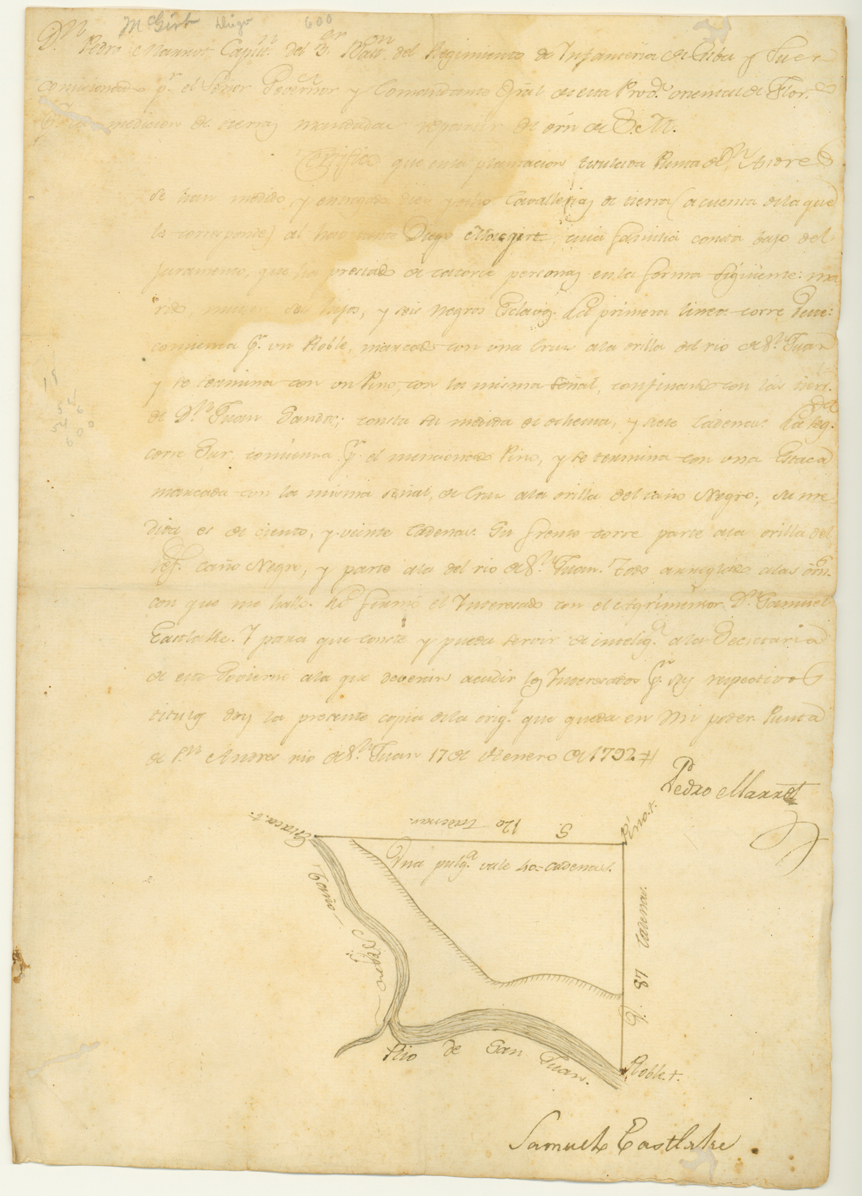 McGirt Diego 600
Dn Pedro Marrot Capitn del 3r Batn del Regimiento de Infanteria de Cuba y Juez
comisionado pr el Señor Governor y Comandante Gñal de esta Prova oriental de Flora
medicion de tierras mandadas repartir de orn de S. M.
Certifico que en la plantacion titulada Punta de Sn Andres
se han medido, y entregado diez y ocho Cavallerias de tierra (a cuenta de la que
le corresponde) al havitante Diego Macgirt, cuia familia consta bajo del
Juramento, que ha prestado de catorce personas en la forma siguiente: ma-
rido, muger, seis hijos, y seis negros Esclavos. La primera linea corre Oeste:
comienza pr un Roble, marcado con una Cruz a la orilla del rio de Sn Juan
y se termina con un Pino, con la misma señal, confinando con las tierras
de Dn Juan ; consta su medida de ochenta, y siete Cadenas. La segda
corre Sur, comienza pr el mencionado Pino, y se termina con una Estaca
marcada con la misma señal, de Cruz a la orilla del caño Negro; su me-
dida es de ciento, y veinte Cadenas. Su frente corre parte a la orilla del
caño Negro, y parte a la del rio de Sn Juan. Todo arreglado a las orns
con que me hallo. Lo firmó el Interesado con el Agrimensor Dn Samuel
Eastlake. Y para que conste y pueda servir de inteliga a la Secretaria
de este Govierno a la que deverán acudir los Interesados pr sus respectivos
titulos doy la presente copia de la origl que queda en mi poder. Punta
de Sn Andres rio de Sn Juan 17 de Henero de 1792
Pedro Marrot
18
546
54
600
Estaca. +.
S. 120 Cadenas.
Pino. +.
Una pulga vale 40 = Cadenas.
Caño Negro
O. 87 Cadenas.
Rio de San Juan.
Roble +.
Samuel Eastlake